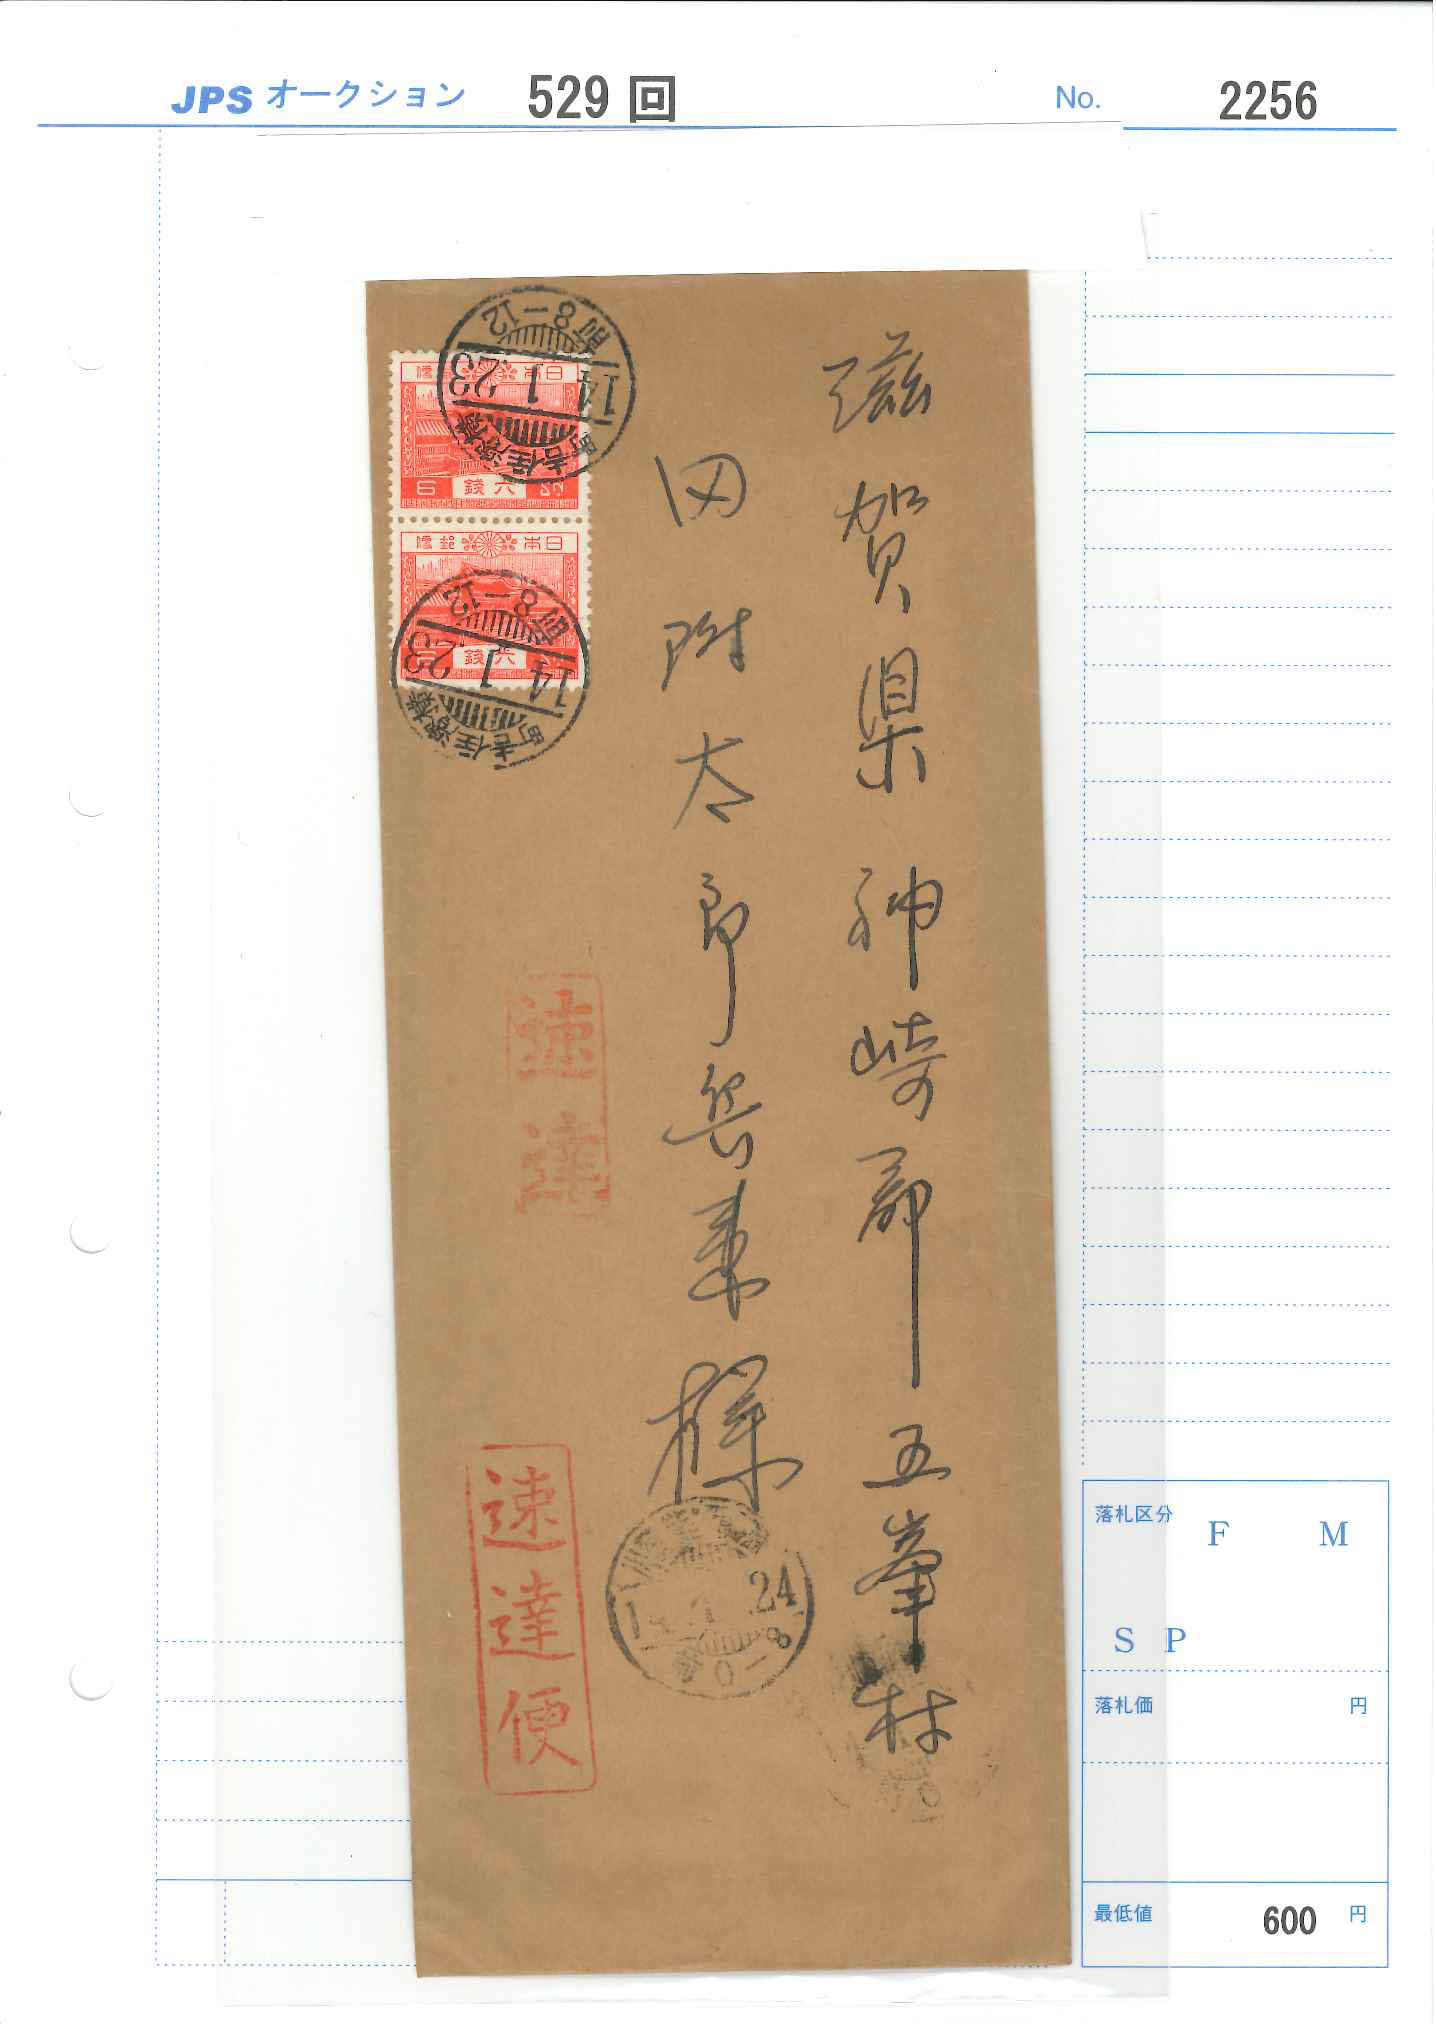 JPS オークション 529 回 No. 2256
滋賀県神崎郡五峯村
田附太郎兵衛様
日本郵便
六銭
日本郵便
六銭
前8-12
14 1 23
前8-12
14 1 23
速達
速達便
24
0-8
落札区分 F M
S P
落札価 円
最低値 600 円